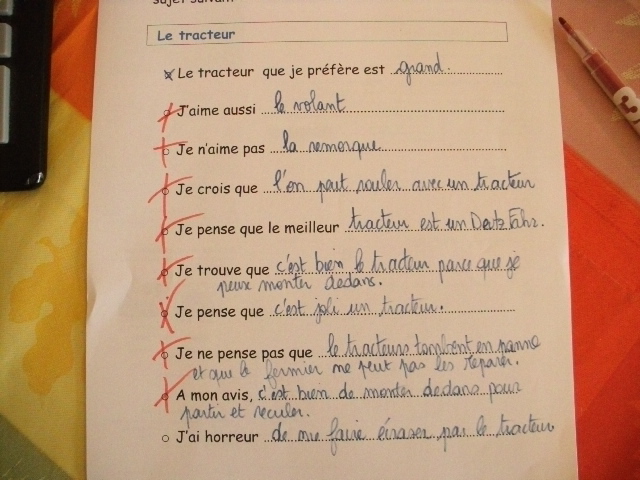 sujet suivant
Le tracteur
Le tracteur que je préfère est grand.
J'aime aussi le volant
Je n'aime pas la remorque
Je crois que l'on peut rouler avec un tracteur
Je pense que le meilleur tracteur est un Deutz Fahr.
Je trouve que c'est bien le tracteur parce que je
peux monter dedans.
Je pense que c'est joli un tracteur.
Je ne pense pas que le tracteurs tombent en panne
et que le fermier ne peut pas les réparer.
A mon avis, c'est bien de monter dedans pour
partir et reculer.
J'ai horreur de me faire écraser par le tracteur